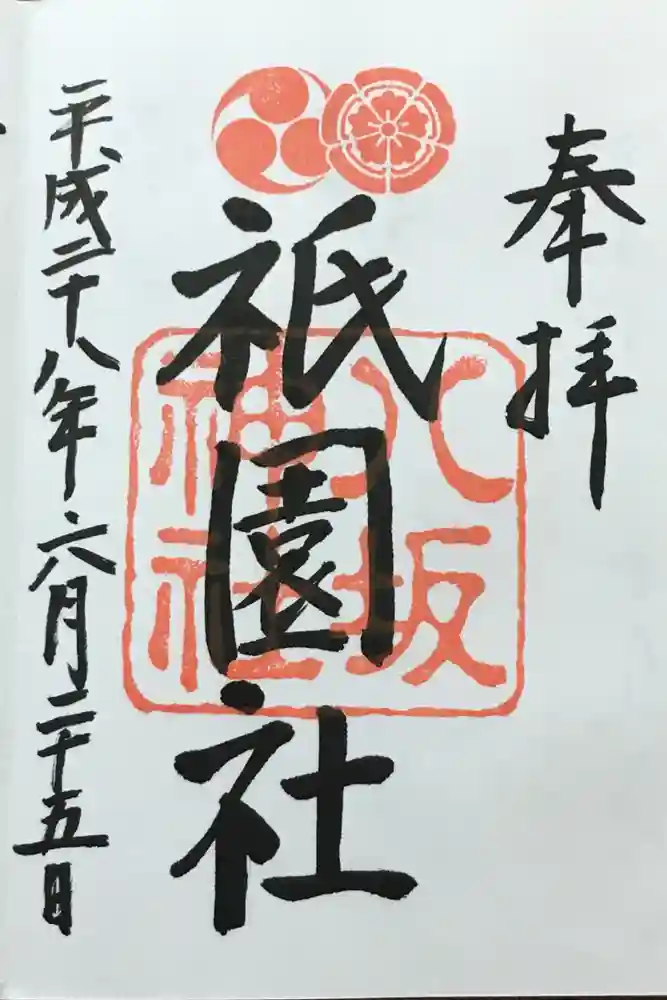 奉拝
祇園社
八坂
神社
平成二十八年六月二十五日